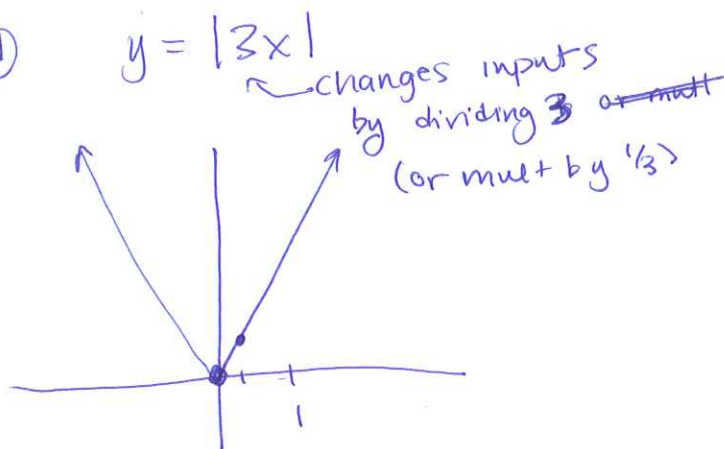 ①
y = |3x|
changes inputs
by dividing 3 or mult
(or mult by 1/3)
1